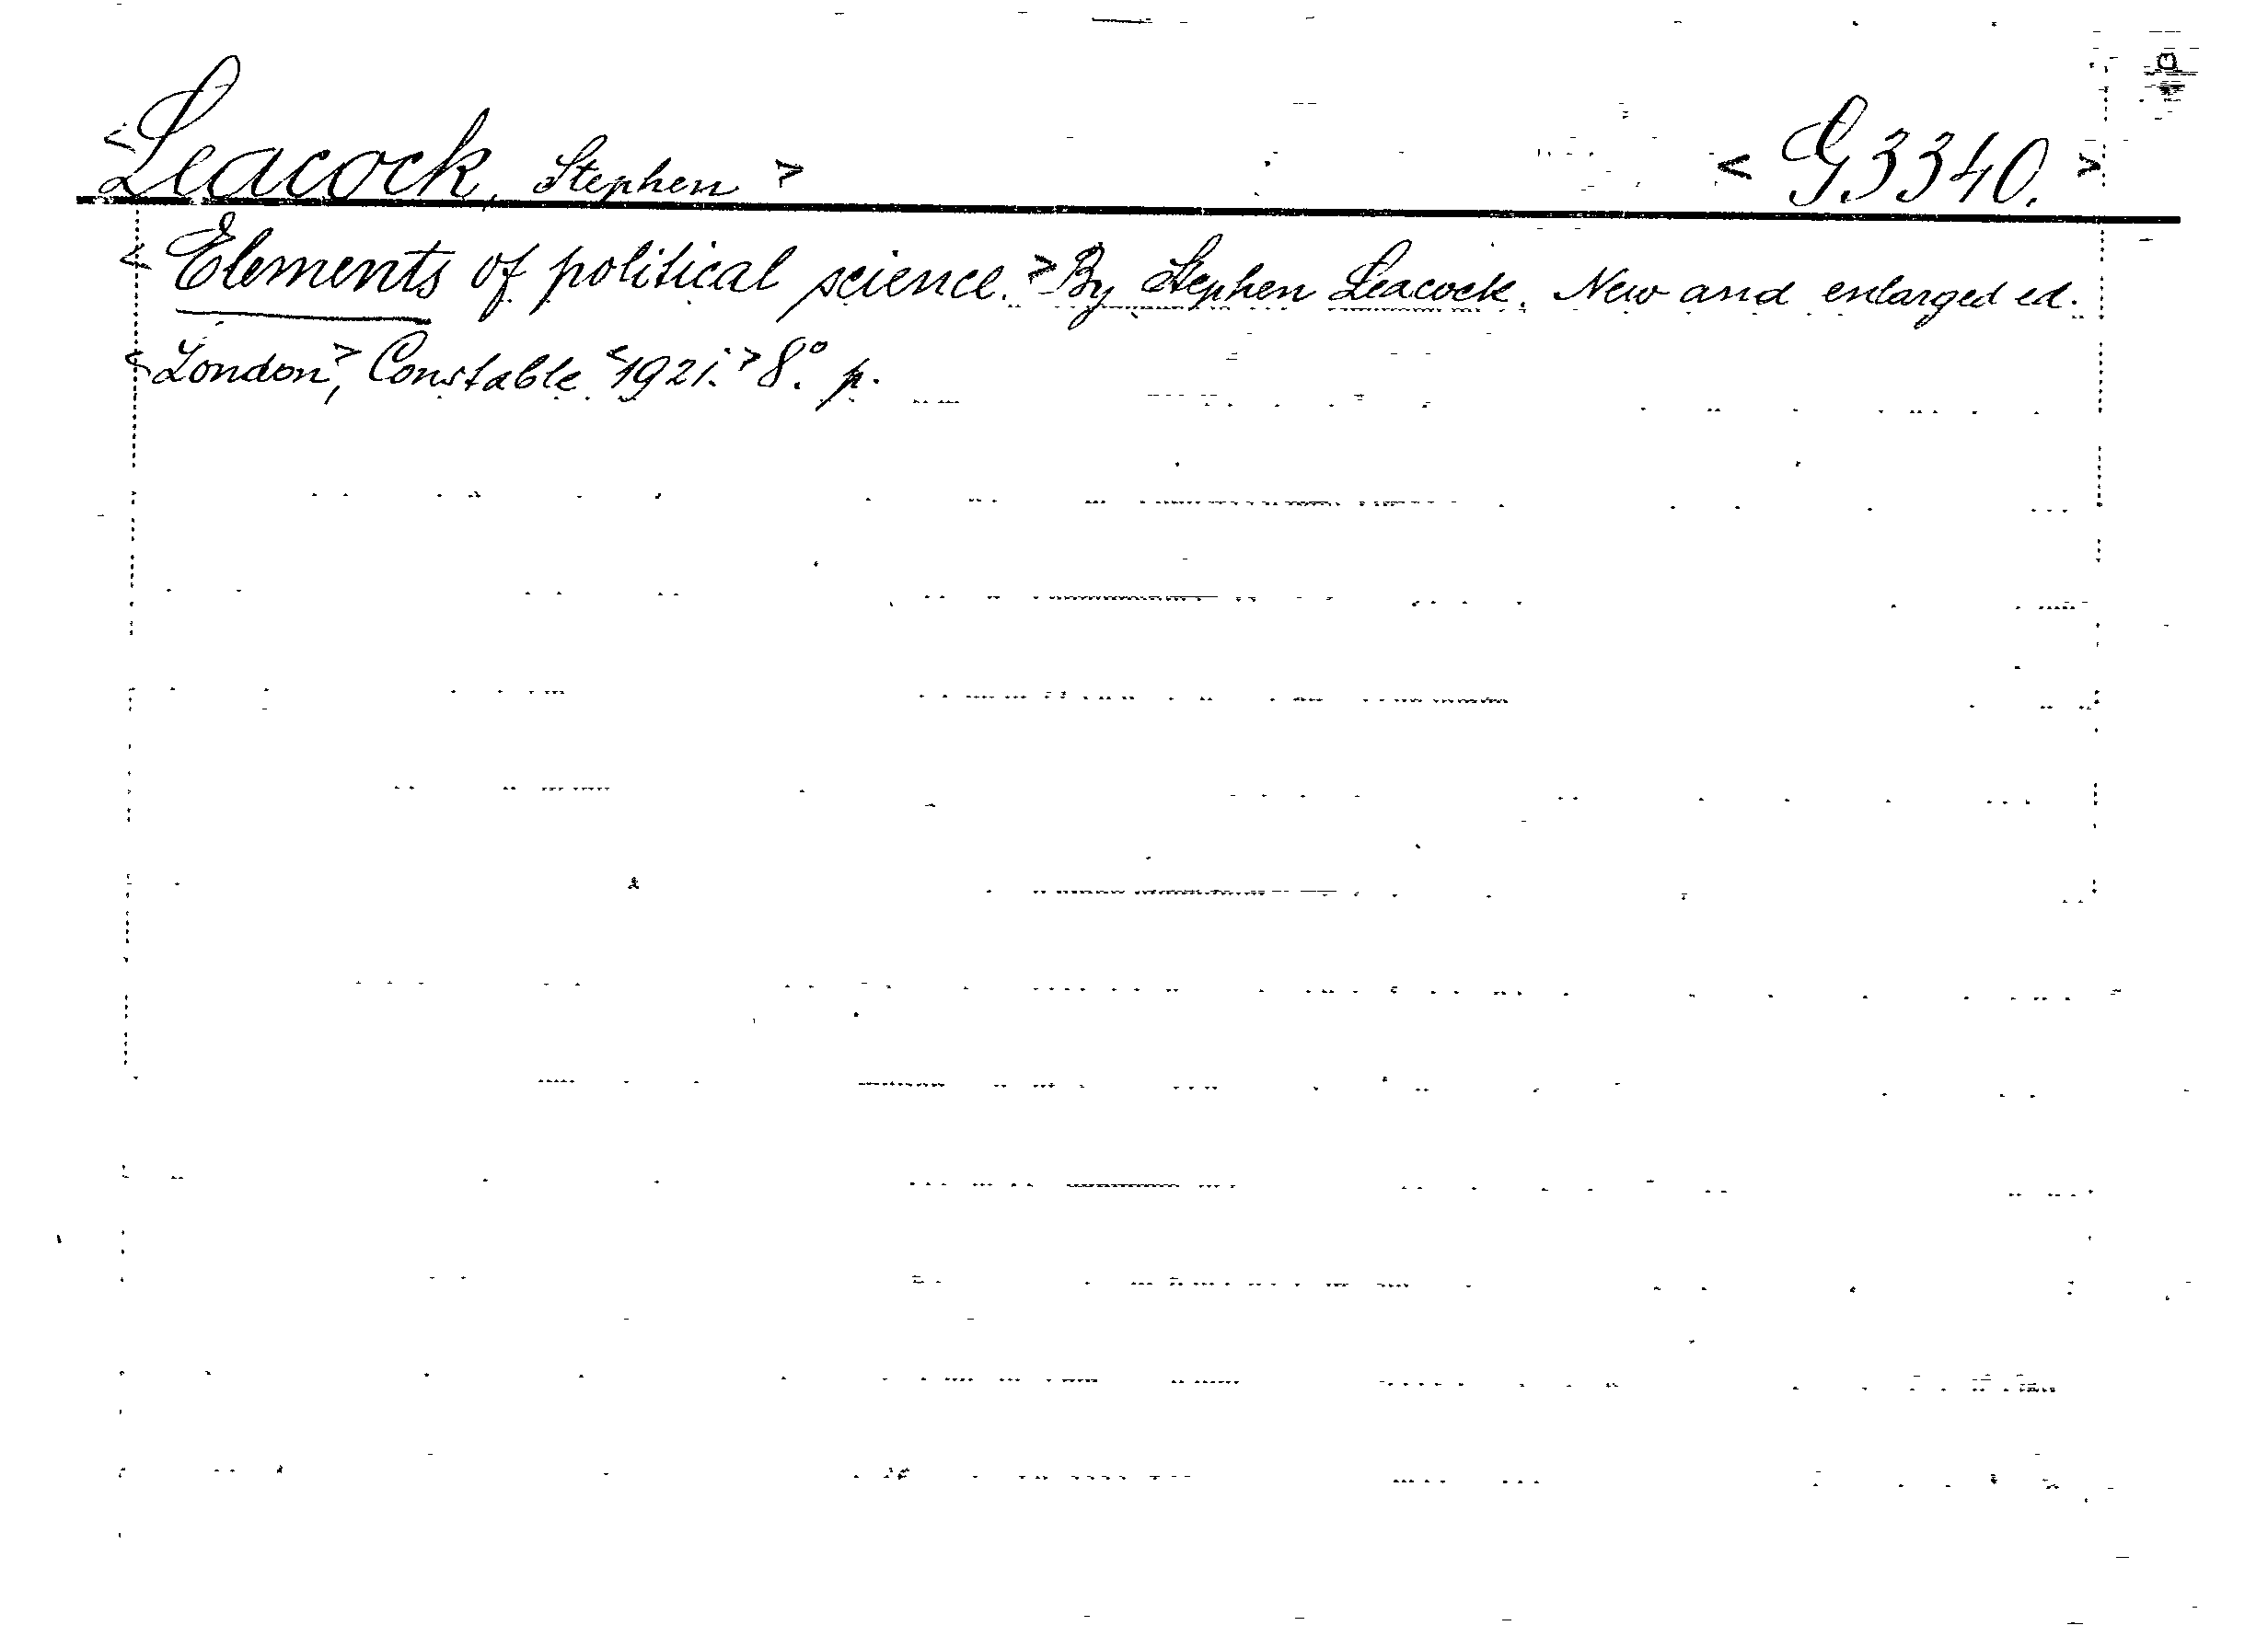 <Leacock, Stephen> <G3340.>
<Elements of political science.> By Stephen Leacock. New and enlarged ed.
<London>, Constable <1921.> 8°. p.